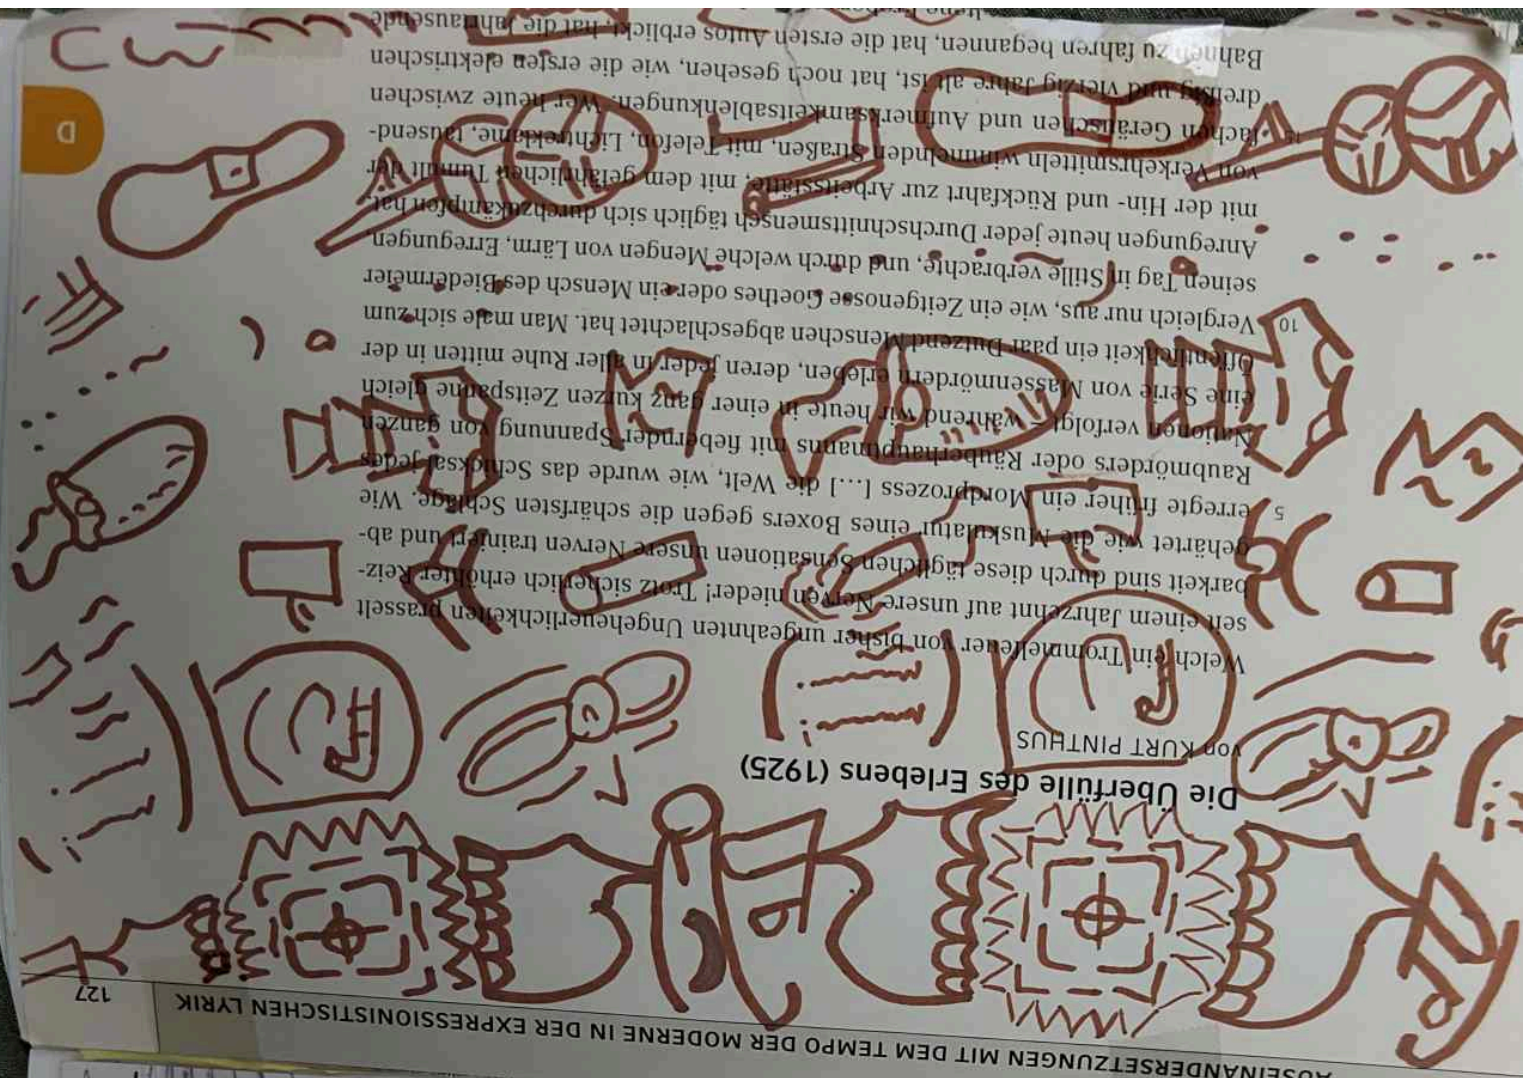 AUSEINANDERSETZUNGEN MIT DEM TEMPO DER MODERNE IN DER EXPRESSIONISTISCHEN LYRIK
127
Die Überfülle des Erlebens (1925)
von KURT PINTHUS
Welch ein Trommelfeuer von bisher ungeahnten Ungeheuerlichkeiten prasselt
seit einem Jahrzehnt auf unsere Nerven nieder! Trotz sicherlich erhöhter Reiz-
barkeit sind durch diese täglichen Sensationen unsere Nerven trainiert und ab-
gehärtet wie die Muskulatur eines Boxers gegen die schärfsten Schläge. Wie
5 erregte früher ein Mordprozess [...] die Welt, wie wurde das Schicksal jedes
Raubmörders oder Räuberhauptmanns mit fiebernder Spannung von ganzen
Nationen verfolgt – während wir heute in einer ganz kurzen Zeitspanne gleich
eine Serie von Massenmördern erleben, deren jeder in aller Ruhe mitten in der
Öffentlichkeit ein paar Dutzend Menschen abgeschlachtet hat. Man male sich zum
10 Vergleich nur aus, wie ein Zeitgenosse Goethes oder ein Mensch des Biedermeier
seinen Tag in Stille verbrachte, und durch welche Mengen von Lärm, Erregungen,
Anregungen heute jeder Durchschnittsmensch täglich sich durchzukämpfen hat,
mit der Hin- und Rückfahrt zur Arbeitsstätte, mit dem gefährlichen Tumult der
von Verkehrsmitteln wimmelnden Straßen, mit Telefon, Lichtreklame, tausend-
15 fachen Geräuschen und Aufmerksamkeitsablenkungen. Wer heute zwischen
dreißig und vierzig Jahre alt ist, hat noch gesehen, wie die ersten elektrischen
Bahnen zu fahren begannen, hat die ersten Autos erblickt, hat die Jahrtausende
D